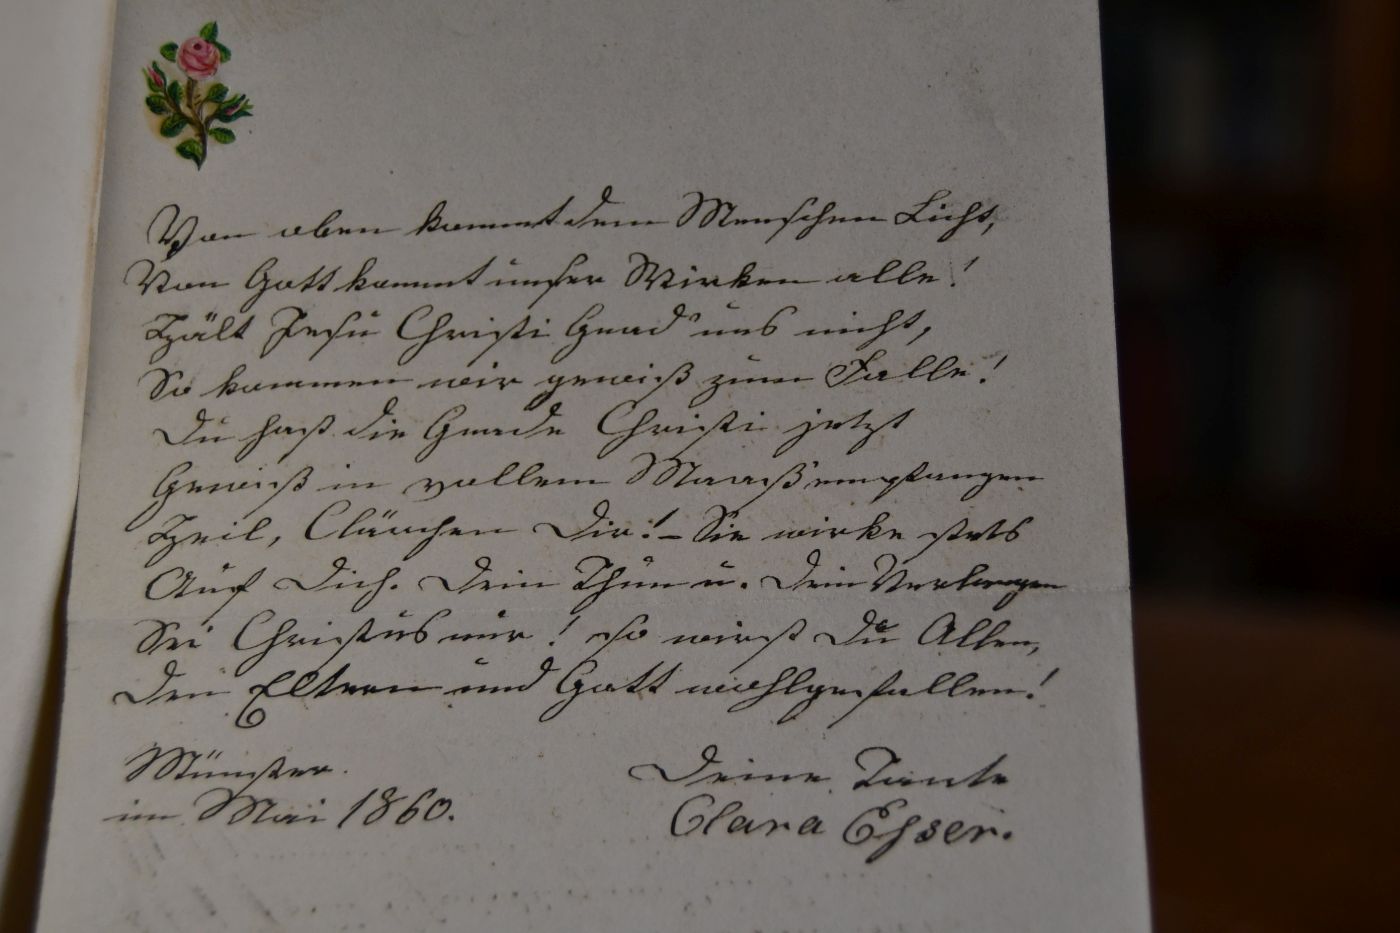 Von oben kommt dem Menschen Licht,
Von Gott kommt unser Wirken alle!
Hält Jesu Christi Gnad' uns nicht,
So kommen wir gewiß zum Falle!
Du hast die Gnade Christi jetzt
Gewiß in vollem Maaß' empfangen
Heil, Clärchen Dir! – Sie wirke stets
Auf Dich. Dein Thun u. Dein Verlangen
Sei Christus nur! so wirst Du Allen,
Den Eltern und Gott wohlgefallen!
Münster.
im Mai 1860.
Deine Tante
Clara Esser.